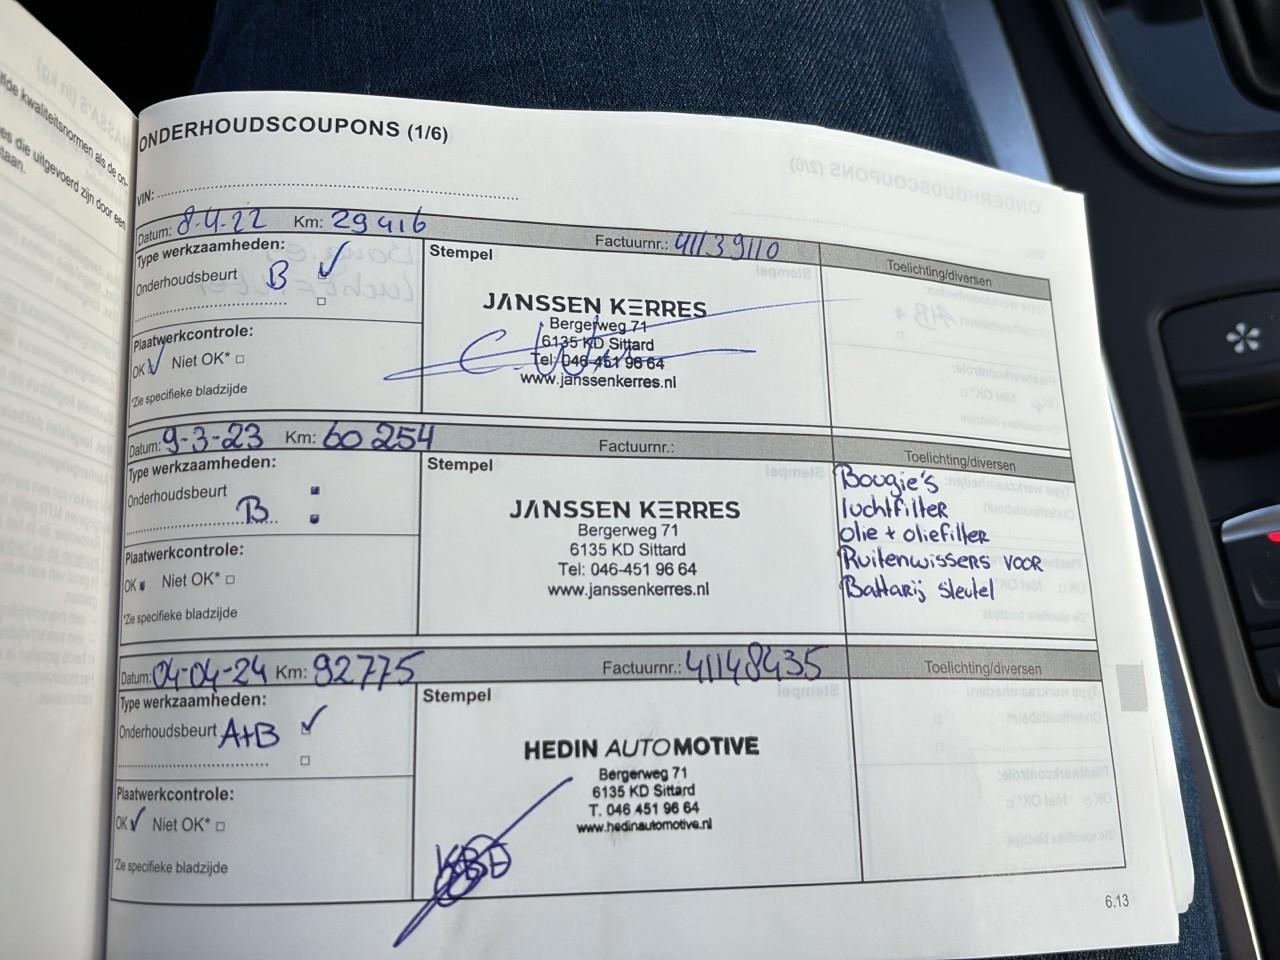 ONDERHOUDSCOUPONS (1/6)
VIN:
Datum: 8-4-22 Km: 29416 Factuurnr.: 41139110
Toelichting/diversen
Type werkzaamheden:
Onderhoudsbeurt B
Plaatwerkcontrole:
OK Niet OK*
*Zie specifieke bladzijde
Stempel
JANSSEN KERRES
Bergerweg 71
6135 KD Sittard
Tel: 046-451 96 64
www.janssenkerres.nl
Datum: 9-3-23 Km: 60 254 Factuurnr.:
Toelichting/diversen
Type werkzaamheden:
Onderhoudsbeurt
B
Plaatwerkcontrole:
OK Niet OK*
*Zie specifieke bladzijde
Stempel
JANSSEN KERRES
Bergerweg 71
6135 KD Sittard
Tel: 046-451 96 64
www.janssenkerres.nl
Bougie's
luchtfilter
olie + oliefilter
Ruitenwissers voor
Battarij sleutel
Datum: 04-04-24 Km: 92775 Factuurnr.: 41148435
Toelichting/diversen
Type werkzaamheden:
Onderhoudsbeurt A+B
Plaatwerkcontrole:
OK Niet OK*
*Zie specifieke bladzijde
Stempel
HEDIN AUTOMOTIVE
Bergerweg 71
6135 KD Sittard
T. 046 451 96 64
www.hedinautomotive.nl
6.13